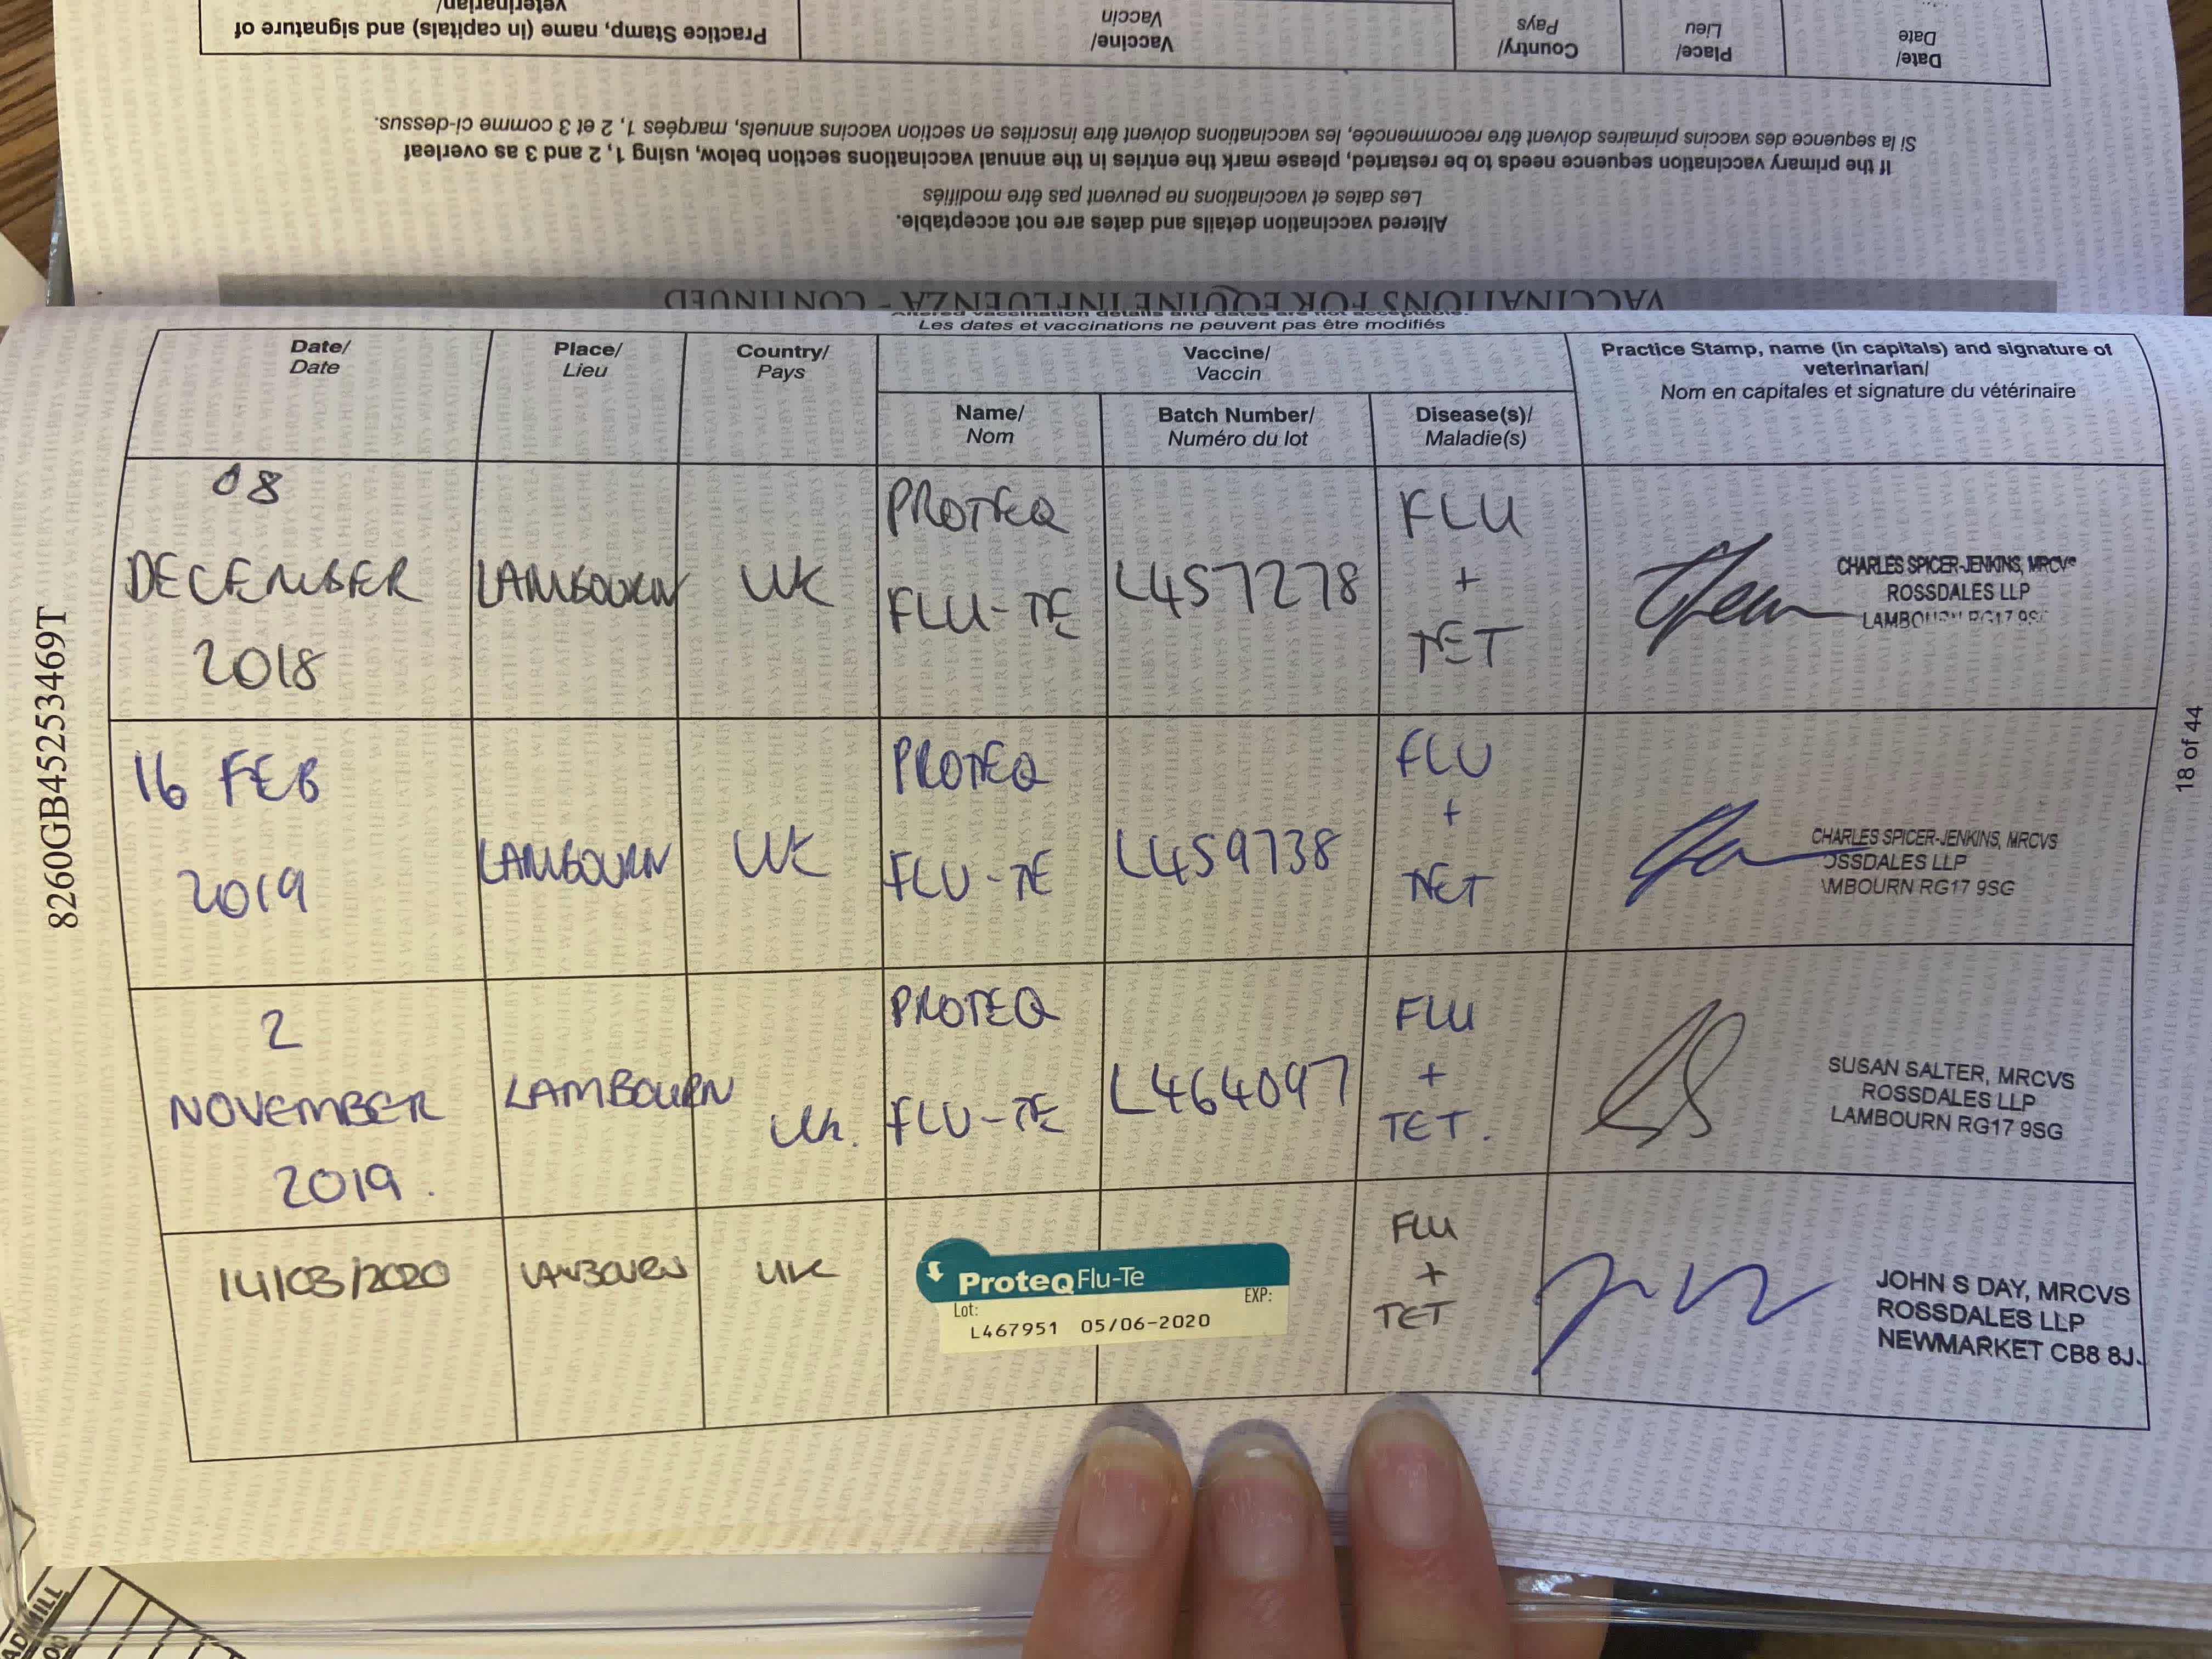 Practice Stamp, name (in capitals) and signature of
veterinarian/
Vaccine/
Vaccin
Country/
Pays
Place/
Lieu
Date/
Date
If the primary vaccination sequence needs to be restarted, please mark the entries in the annual vaccinations section below, using 1, 2 and 3 as overleaf
Si la sequence des vaccins primaires doivent être recommencée, les vaccinations doivent être inscrites en section vaccins annuels, marqées 1, 2 et 3 comme ci-dessus.
Altered vaccination details and dates are not acceptable.
Les dates et vaccinations ne peuvent pas être modifiés
VACCINATIONS FOR EQUINE INFLUENZA - CONTINUED
Altered vaccination details and dates are not acceptable.
Les dates et vaccinations ne peuvent pas être modifiés
Date/
Date
Place/
Lieu
Country/
Pays
Vaccine/
Vaccin
Name/
Nom
Batch Number/
Numéro du lot
Disease(s)/
Maladie(s)
Practice Stamp, name (in capitals) and signature of
veterinarian/
Nom en capitales et signature du vétérinaire
08
DECEMBER
2018
LAMBOURN
UK
PROTEQ
FLU-TE
L457278
FLU
+
TET
CHARLES SPICER-JENKINS, MRCVS
ROSSDALES LLP
LAMBOURN RG17 9SG
16 FEB
2019
LAMBOURN
UK
PROTEQ
FLU-TE
L459738
FLU
+
TET
CHARLES SPICER-JENKINS, MRCVS
OSSDALES LLP
MBOURN RG17 9SG
2
NOVEMBER
2019.
LAMBOURN
UK.
PROTEQ
FLU-TE
L464097
FLU
+
TET.
SUSAN SALTER, MRCVS
ROSSDALES LLP
LAMBOURN RG17 9SG
14/03/2020
LAMBOURN
UK
ProteqFlu-Te
Lot:
EXP:
L467951 05/06-2020
FLU
+
TET
JOHN S DAY, MRCVS
ROSSDALES LLP
NEWMARKET CB8 8J
8260GB45253469T
18 of 44